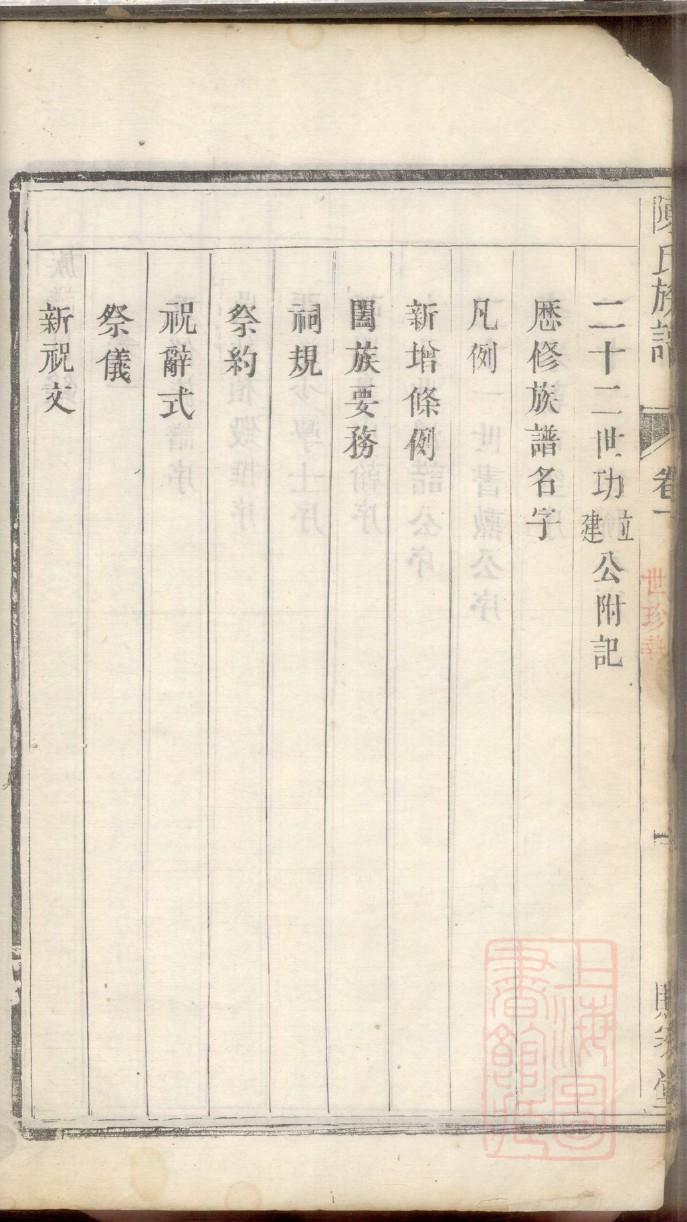 陳氏族譜 卷一
世珍執
二十二世功立建公附記
歷修族譜名字
凡例
新增條例
闔族要務
祠規
祭約
祝辭式
祭儀
新祝文
上海圖書館藏